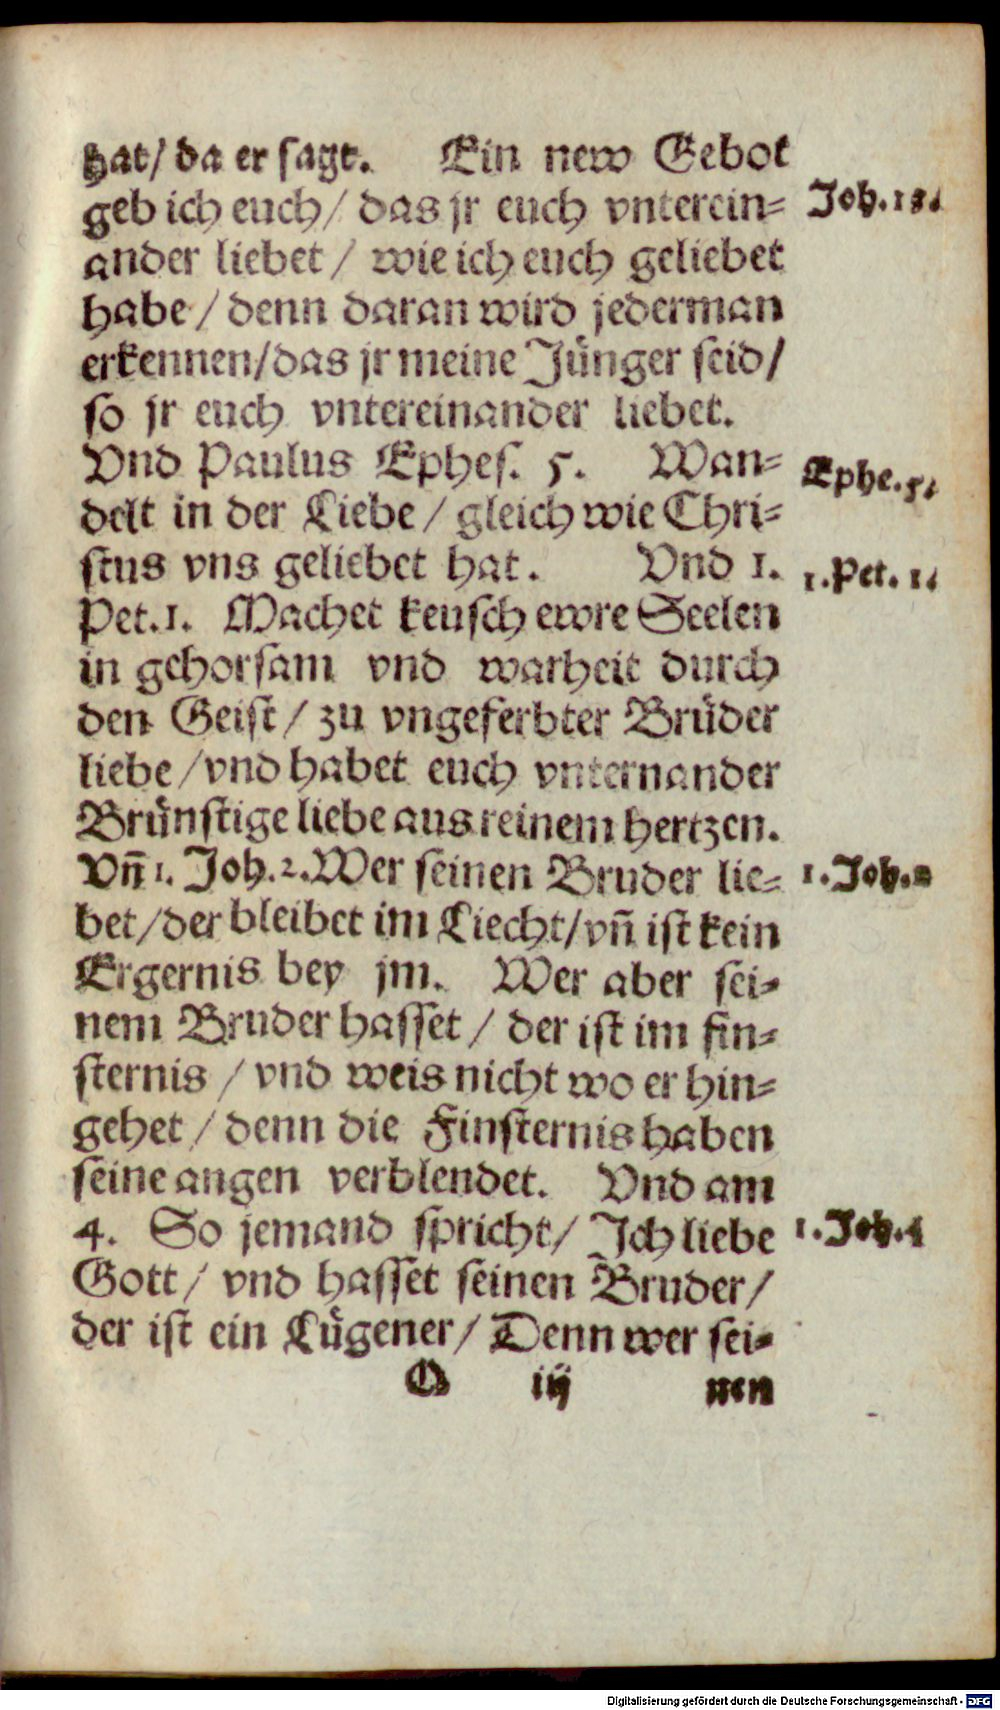 hat/ da er sagt. Ein new Gebot
geb ich euch/ das jr euch vnterein=
Joh. 13.
ander liebet/ wie ich euch geliebet
habe/ denn daran wird jederman
erkennen/das jr meine Jünger seid/
so jr euch vntereinander liebet.
Vnd Paulus Ephes. 5. Wan=
Ephe. 5.
delt in der Liebe/ gleich wie Chri=
stus vns geliebet hat. Vnd 1.
1. Pet. 1.
Pet. 1. Machet keusch ewre Seelen
in gehorsam vnd warheit durch
den Geist/ zu vngeferbter Brüder
liebe/vnd habet euch vnternander
Brünstige liebe aus reinem hertzen.
Vñ 1. Joh. 2. Wer seinen Bruder lie=
1. Joh. 2
bet/der bleibet im Liecht/vñ ist kein
Ergernis bey jm. Wer aber sei=
nem Bruder hasset/ der ist im fin=
sternis/ vnd weis nicht wo er hin=
gehet/ denn die Finsternis haben
seine angen verblendet. Vnd am
4. So jemand spricht/ Ich liebe
1. Joh. 4
Gott/ vnd hasset seinen Bruder/
der ist ein Lügener/ Denn wer sei=
O iij nen
Digitalisierung gefördert durch die Deutsche Forschungsgemeinschaft - DFG